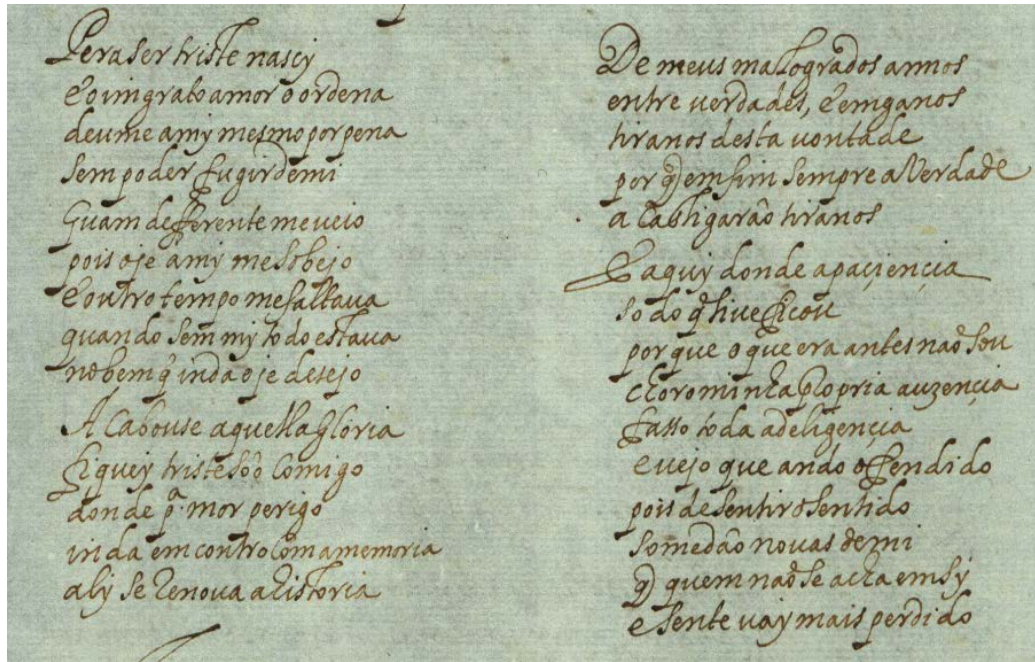 Pera ser triste nasçy
E o imgrato amor o ordena
deume a my mesmo por pena
sem poder fugir de mi
Quam defferente me veio
pois oje a my me sobejo
E outro tempo me faltava
quando sem my todo estava
no bem q̃ inda oje desejo
A Cabouse aquella gloria
fiquey triste soô Comigo
donde pª mor perigo
inda em contro Com a memoria
aly se Renova a historia
De meus malogrados annos
entre verdades, E emganos
tiranos desta vontade
por q̃ em fim sempre a Verdade
a Castigarão tiranos
E aquy donde a paçiençia
so do q̃ tive ficou
por que o que era antes não sou
choro minha propria auzençia
fasso toda a deligençia
e vejo que ando offendido
pois de sentir o sentido
so me dão novas de mi
q̃ quem não se acha em sy
e sente vay mais perdido